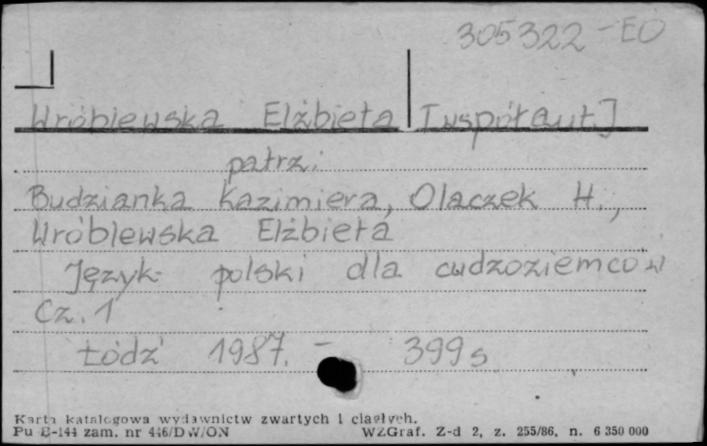 305322-EO
Wróblewska Elżbieta [współaut.]
patrz:
Budzianka Kazimiera, Olaczek H.,
Wróblewska Elżbieta
Język polski dla cudzoziemców
Cz. 1
Łódź 1987. - 399 s
Karta katalogowa wydawnictw zwartych i ciągłych.
Pu B-144 zam. nr 446/DW/ON WZGraf. Z-d 2, z. 255/86, n. 6 350 000